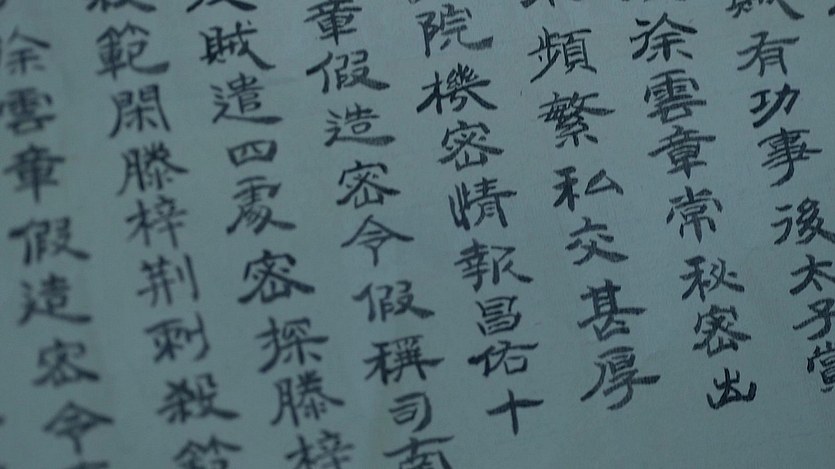 有功事後太子當
徐雲章常秘密出
頻繁私交甚厚
院機密情報昌佑十
章假造密令假稱司南
賊遣四處密探滕梓
範閑滕梓荆刺殺範
徐雲章假造密令